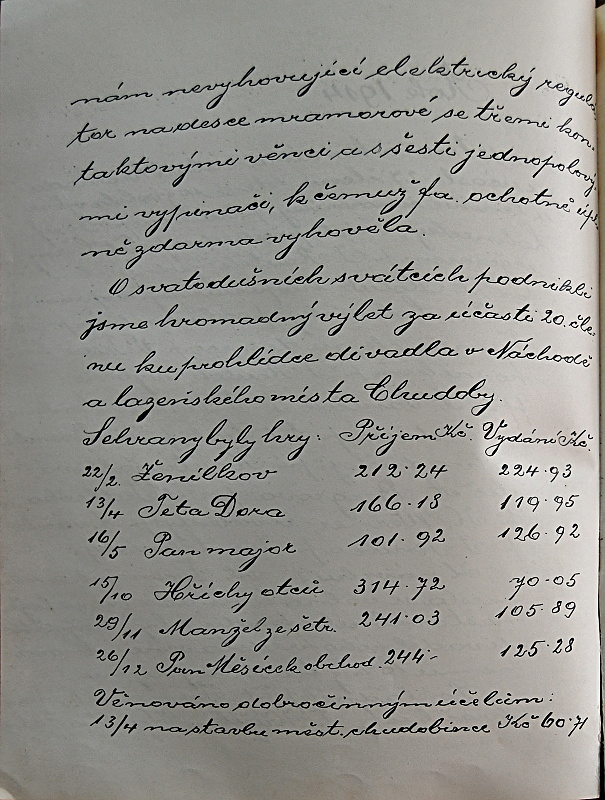 nám nevyhovující elektrický regula-
tor na desce mramorové se třemi kon-
taktovými věnci a s šesti jednopolový-
mi vypinači, k čemuž fa. ochotně úpl-
ně zdarma vyhověla.
O svatodušních svátcích podnikli
jsme hromadný výlet za účasti 20. čle-
nu ku prohlídce divadla v Náchodě
a lazeňského místa Chudoby.
Sehrany byly hry: Příjem Kč. Vydání Kč.
22/2. Ženílkov 212·24 224·93
13/4 Teta Dora 166·18 119·95
16/5 Pan major 101·92 126·92
15/10 Hříchy otců 314·72 70·05
29/11 Manžel ze šetr. 241·03 105·89
26/12 Pan Měsíček obchod. 244·- 125·28
Věnováno dobročinným účelům:
13/4 na stavbu měst. chudobince Kč 60·71